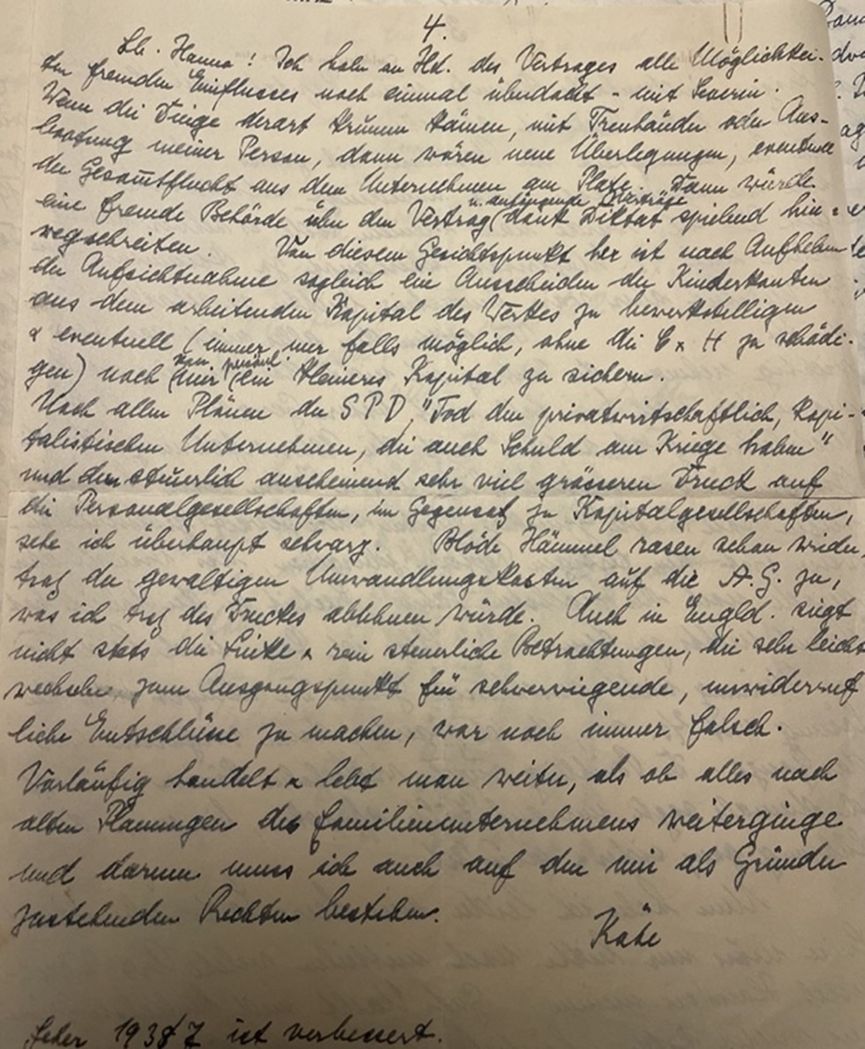 4.
Lb. Hanna! Ich habe an Hd. des Vertrages alle Möglichkei-
ten fremden Einflusses noch einmal überdacht - mit Severin.
Wenn die Dinge derart krumm kämen, mit Treuhänder oder Aus-
bootung meiner Person, dann wären neue Überlegungen, eventuell
der Gesamtflucht aus dem Unternehmen am Platz. Dann würde
u. anhängende Verträge
eine fremde Behörde über den Vertrag (dank Diktat spielend hin-
wegschreiten. Von diesem Gesichtspunkt her ist nach Aufheben
der Aufsichtnahme sogleich ein Ausscheiden der Kinderkonten
aus dem arbeitenden Kapital des Werkes zu bewerkstelligen
& eventuell (immer nur falls möglich, ohne die E & H zu schädi-
gen) noch mir persönl. ein kleineres Kapital zu sichern.
Nach allen Plänen der SPD, "Tod den privatwirtschaftlich, kapi-
talistischen Unternehmen, die auch Schuld am Kriege haben"
und den steuerlich anscheinend sehr viel grösseren Druck auf
die Personalgesellschaften, im Gegensatz zu Kapitalgesellschaften,
sehe ich überhaupt schwarz. Blöde Hämmel rasen schon wieder,
trotz der gewaltigen Umwandlungskosten auf die A.G. zu,
was ich trotz des Druckes ablehnen würde. Auch in Engld. siegt
nicht stets die Linke & rein steuerliche Betrachtungen, die sehr leicht
wechseln, zum Ausgangspunkt für schwerwiegende, unwiderruf
liche Entschlüsse zu machen, war noch immer falsch.
Vorläufig handelt & lebt man weiter, als ob alles nach
alten Planungen des Familienunternehmens weiterginge
und darum muss ich auch auf den mir als Gründer
zustehenden Rechten bestehen.
Käte
1937 ist verbessert.